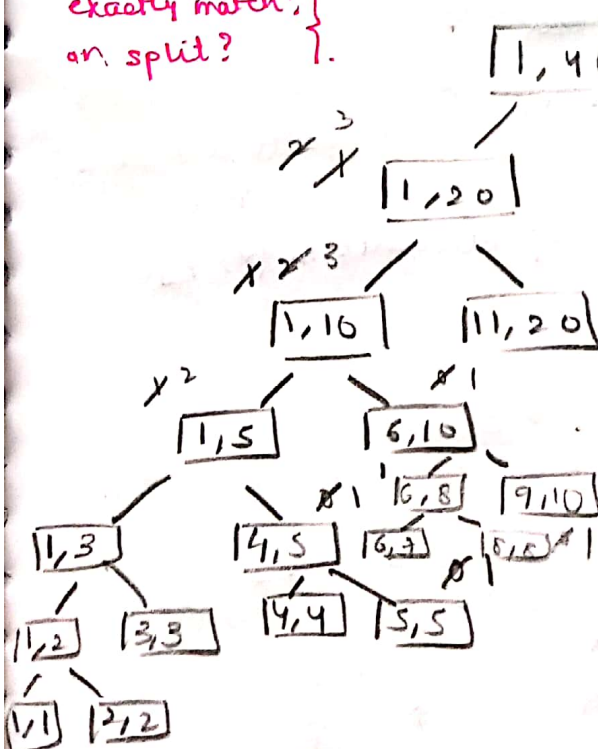 exactly match,
an split? }.
1, 4
2 1 3
1, 20
1 2 3
1, 10 11, 20
1 2 0 1
1, 5 6, 10
0 1 1 6, 8 9, 10
1, 3 4, 5 6, 7 8, 8 0 1
0 1
1, 2 3, 3 4, 4 5, 5
1, 1 2, 2